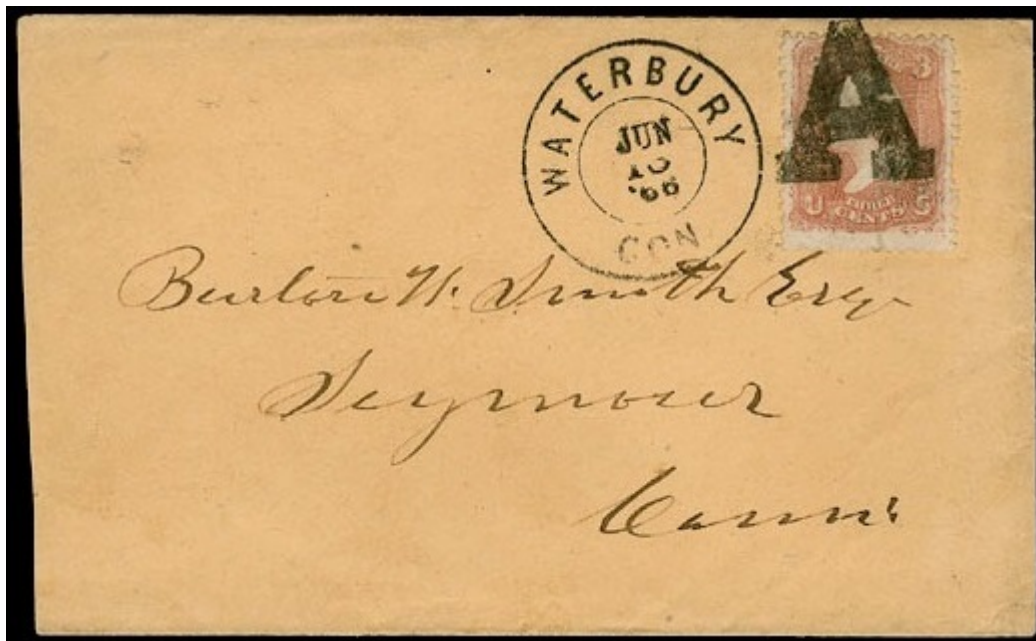 WATERBURY
JUN
'66
CON
A
3
U S
THREE
CENTS
Burton W. Smith Esq
Seymour
Conn: